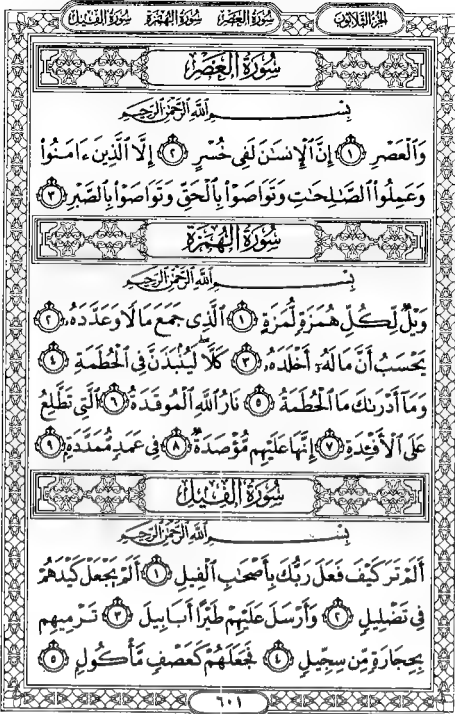 الجزء الثلاثون
سورة العصر سورة الهمزة سورة الفيل
سُورَةُ العَصْرِ
بِسْمِ اللَّهِ الرَّحْمَٰنِ الرَّحِيمِ
وَٱلْعَصْرِ ١ إِنَّ ٱلْإِنسَٰنَ لَفِى خُسْرٍ ٢ إِلَّا ٱلَّذِينَ ءَامَنُوا۟
وَعَمِلُوا۟ ٱلصَّٰلِحَٰتِ وَتَوَاصَوْا۟ بِٱلْحَقِّ وَتَوَاصَوْا۟ بِٱلصَّبْرِ ٣
سُورَةُ الهُمَزَةِ
بِسْمِ اللَّهِ الرَّحْمَٰنِ الرَّحِيمِ
وَيْلٌ لِّكُلِّ هُمَزَةٍ لُّمَزَةٍ ١ ٱلَّذِى جَمَعَ مَالًا وَعَدَّدَهُۥ ٢
يَحْسَبُ أَنَّ مَالَهُۥٓ أَخْلَدَهُۥ ٣ كَلَّا ۖ لَيُنۢبَذَنَّ فِى ٱلْحُطَمَةِ ٤
وَمَآ أَدْرَىٰكَ مَا ٱلْحُطَمَةُ ٥ نَارُ ٱللَّهِ ٱلْمُوقَدَةُ ٦ ٱلَّتِى تَطَّلِعُ
عَلَى ٱلْأَفْـِٔدَةِ ٧ إِنَّهَا عَلَيْهِم مُّؤْصَدَةٌ ٨ فِى عَمَدٍ مُّمَدَّدَةٍۭ ٩
سُورَةُ الفِيلِ
بِسْمِ اللَّهِ الرَّحْمَٰنِ الرَّحِيمِ
أَلَمْ تَرَ كَيْفَ فَعَلَ رَبُّكَ بِأَصْحَٰبِ ٱلْفِيلِ ١ أَلَمْ يَجْعَلْ كَيْدَهُمْ
فِى تَضْلِيلٍ ٢ وَأَرْسَلَ عَلَيْهِمْ طَيْرًا أَبَابِيلَ ٣ تَرْمِيهِم
بِحِجَارَةٍ مِّن سِجِّيلٍ ٤ فَجَعَلَهُمْ كَعَصْفٍ مَّأْكُولٍۭ ٥
٦٠١